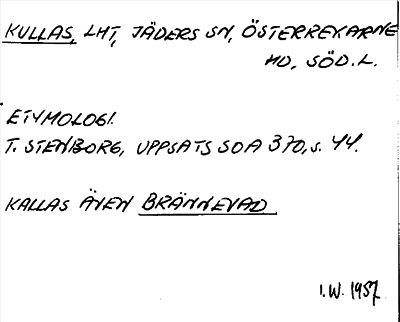 KULLAS, LHT, JÄDERS SN, ÖSTERREKARNE
HD, SÖD.L.
ETYMOLOGI.
T. STENBORG, UPPSATS SOA 370, S. 44.
KALLAS ÄVEN BRÄNNEVAD
I.W. 1957